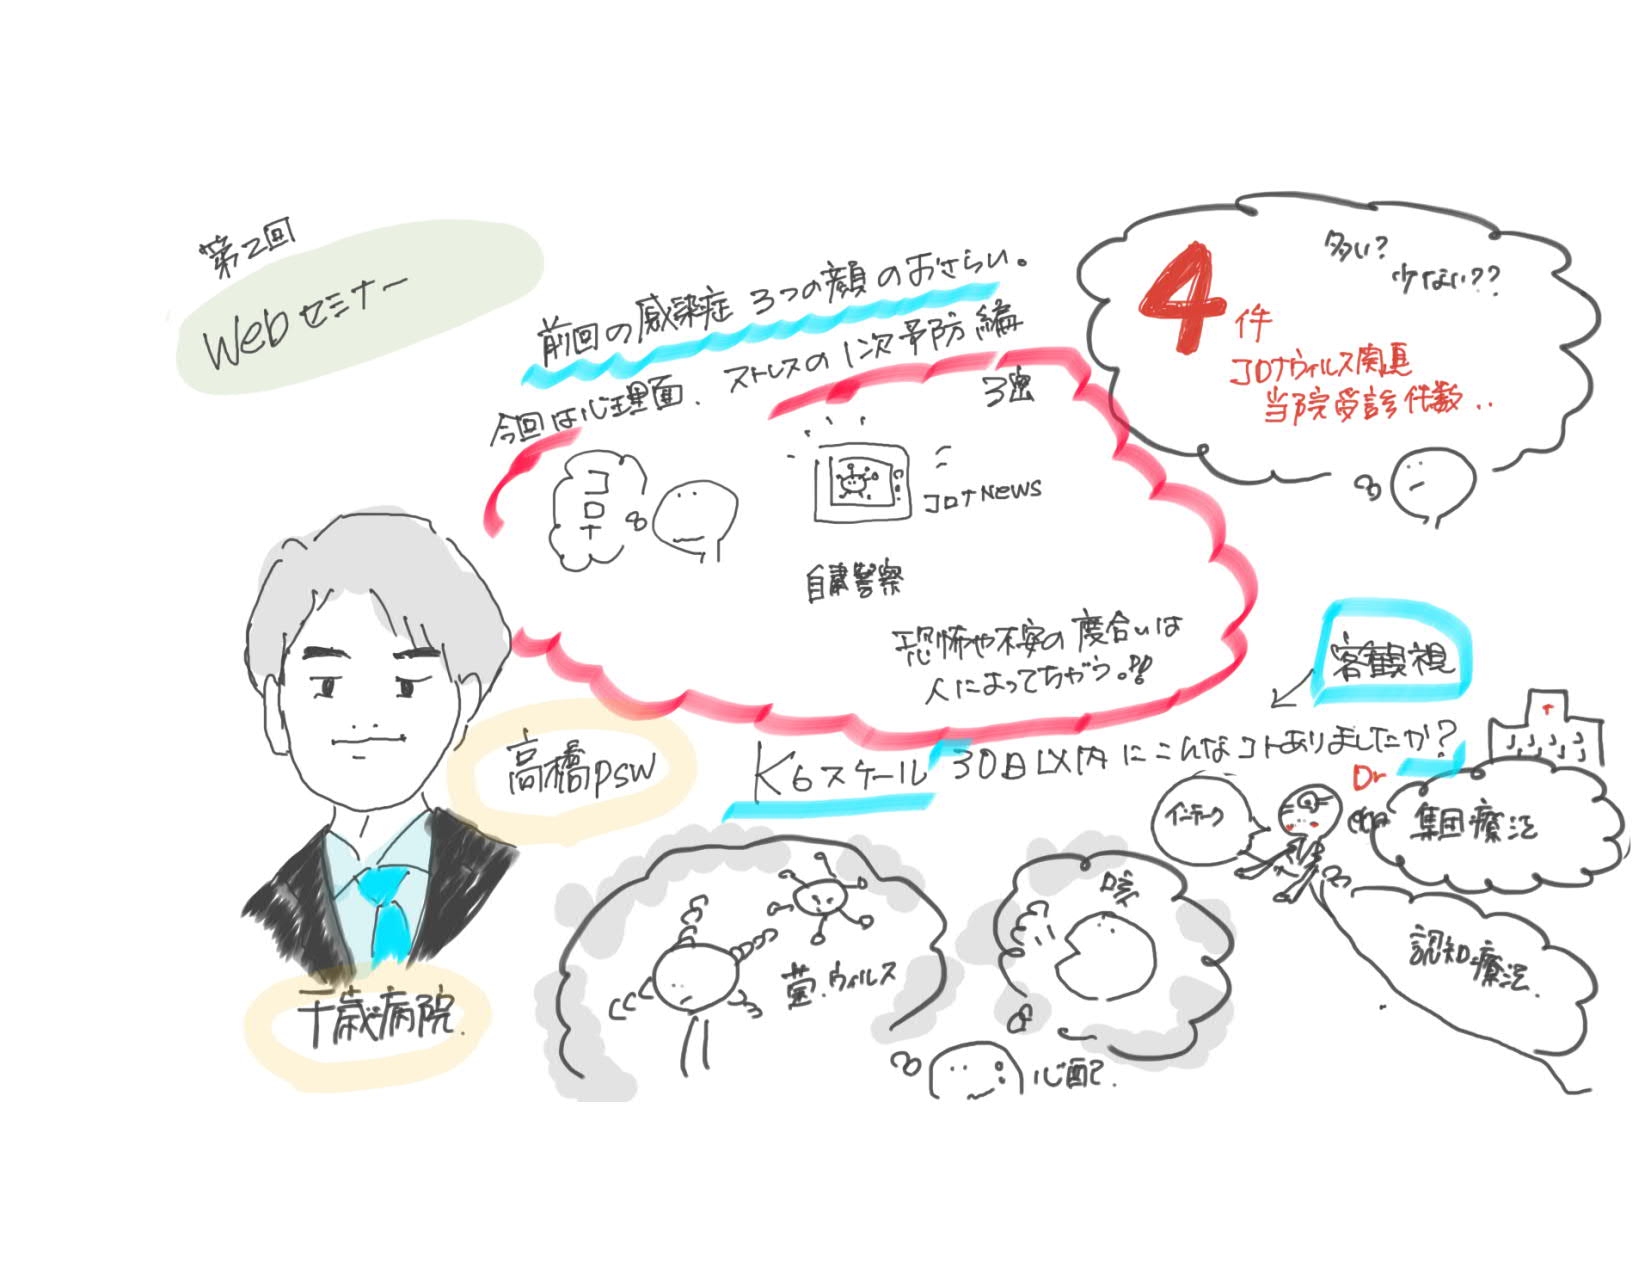 第2回
Webセミナー
前回の感染症 3つの顔のおさらい。
今回は心理面、ストレスの1次予防編
多い?
少ない??
4件
コロナウィルス関連
当院受診件数..
3密
コロナ
コロナNEWS
自粛警察
恐怖や不安の度合いは
人によってちがう。!!
客観視
高橋PSW
K6スケール 30日以内にこんなコトありましたか?
Dr
インテーク
集団療法
認知療法.
咳
菌.ウィルス
心配.
千歳病院.